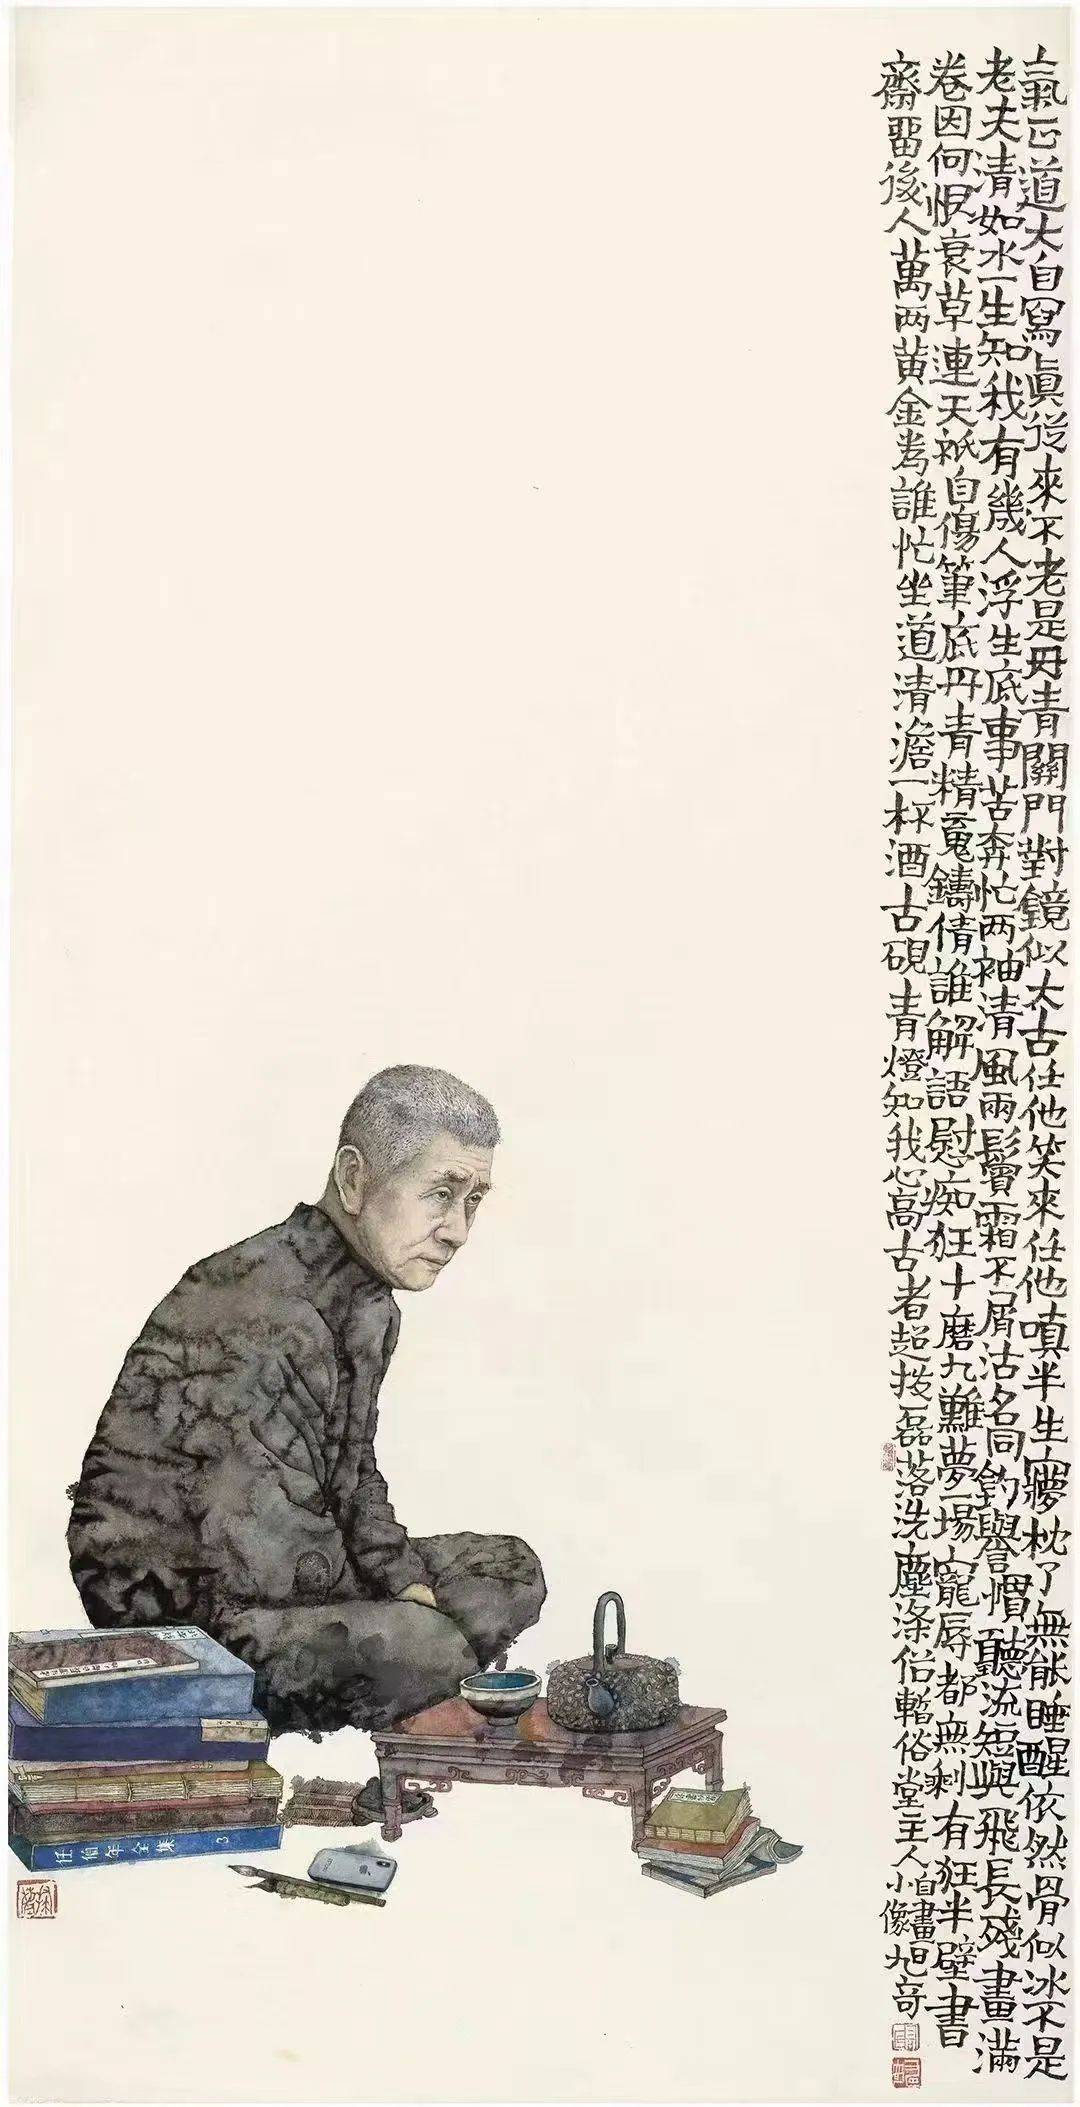 氣正道大自寫眞從來不老是丹青關門對鏡似太古任他笑來任他嗔半生㝱枕了無能睡醒依然骨似冰不是
老夫清如水一生知我有幾人浮生底事苦奔忙两袖清風兩鬢霜不屑沽名同釣譽慣聽流短與飛長殘畫滿
卷因何恨衰草連天衹自傷筆底丹青精魂鑄倩誰解語慰痴狂十磨九難夢一場寵辱都無剩有狂半壁書
齋畱後人萬两黄金爲誰忙坐道清澹一杯酒古硯青燈知我心高古者超拔磊落洗塵滌俗暫俗堂主人自畫小像旭奇
任伯年全集 3